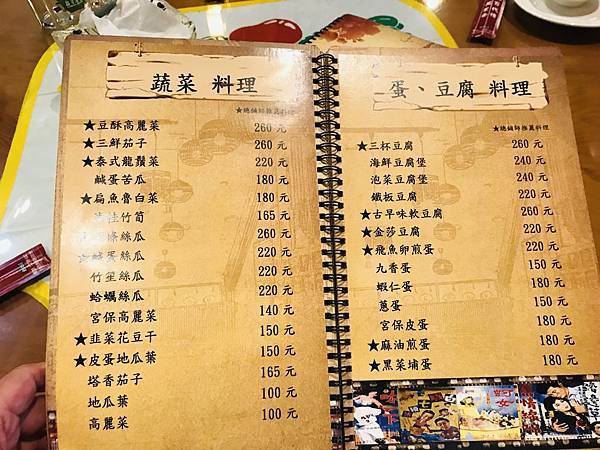 蔬菜 料理
★總鋪師推薦料理
★豆酥高麗菜 260 元
★三鮮茄子 260 元
★泰式龍鬚菜 220 元
鹹蛋苦瓜 180 元
★扁魚魯白菜 180 元
竹筍 165 元
絲瓜 260 元
★鹹蛋絲瓜 220 元
竹笙絲瓜 220 元
蛤蠣絲瓜 220 元
宮保高麗菜 140 元
★韭菜花豆干 150 元
★皮蛋地瓜葉 150 元
塔香茄子 165 元
地瓜葉 100 元
高麗菜 100 元
蛋、豆腐 料理
★總鋪師推薦料理
★三杯豆腐 260 元
海鮮豆腐堡 240 元
泡菜豆腐堡 240 元
鐵板豆腐 180 元
★古早味軟豆腐 220 元
★金莎豆腐 220 元
★飛魚卵煎蛋 220 元
九香蛋 150 元
蝦仁蛋 180 元
蔥蛋 150 元
宮保皮蛋 180 元
★麻油煎蛋 180 元
★黑菜埔蛋 180 元